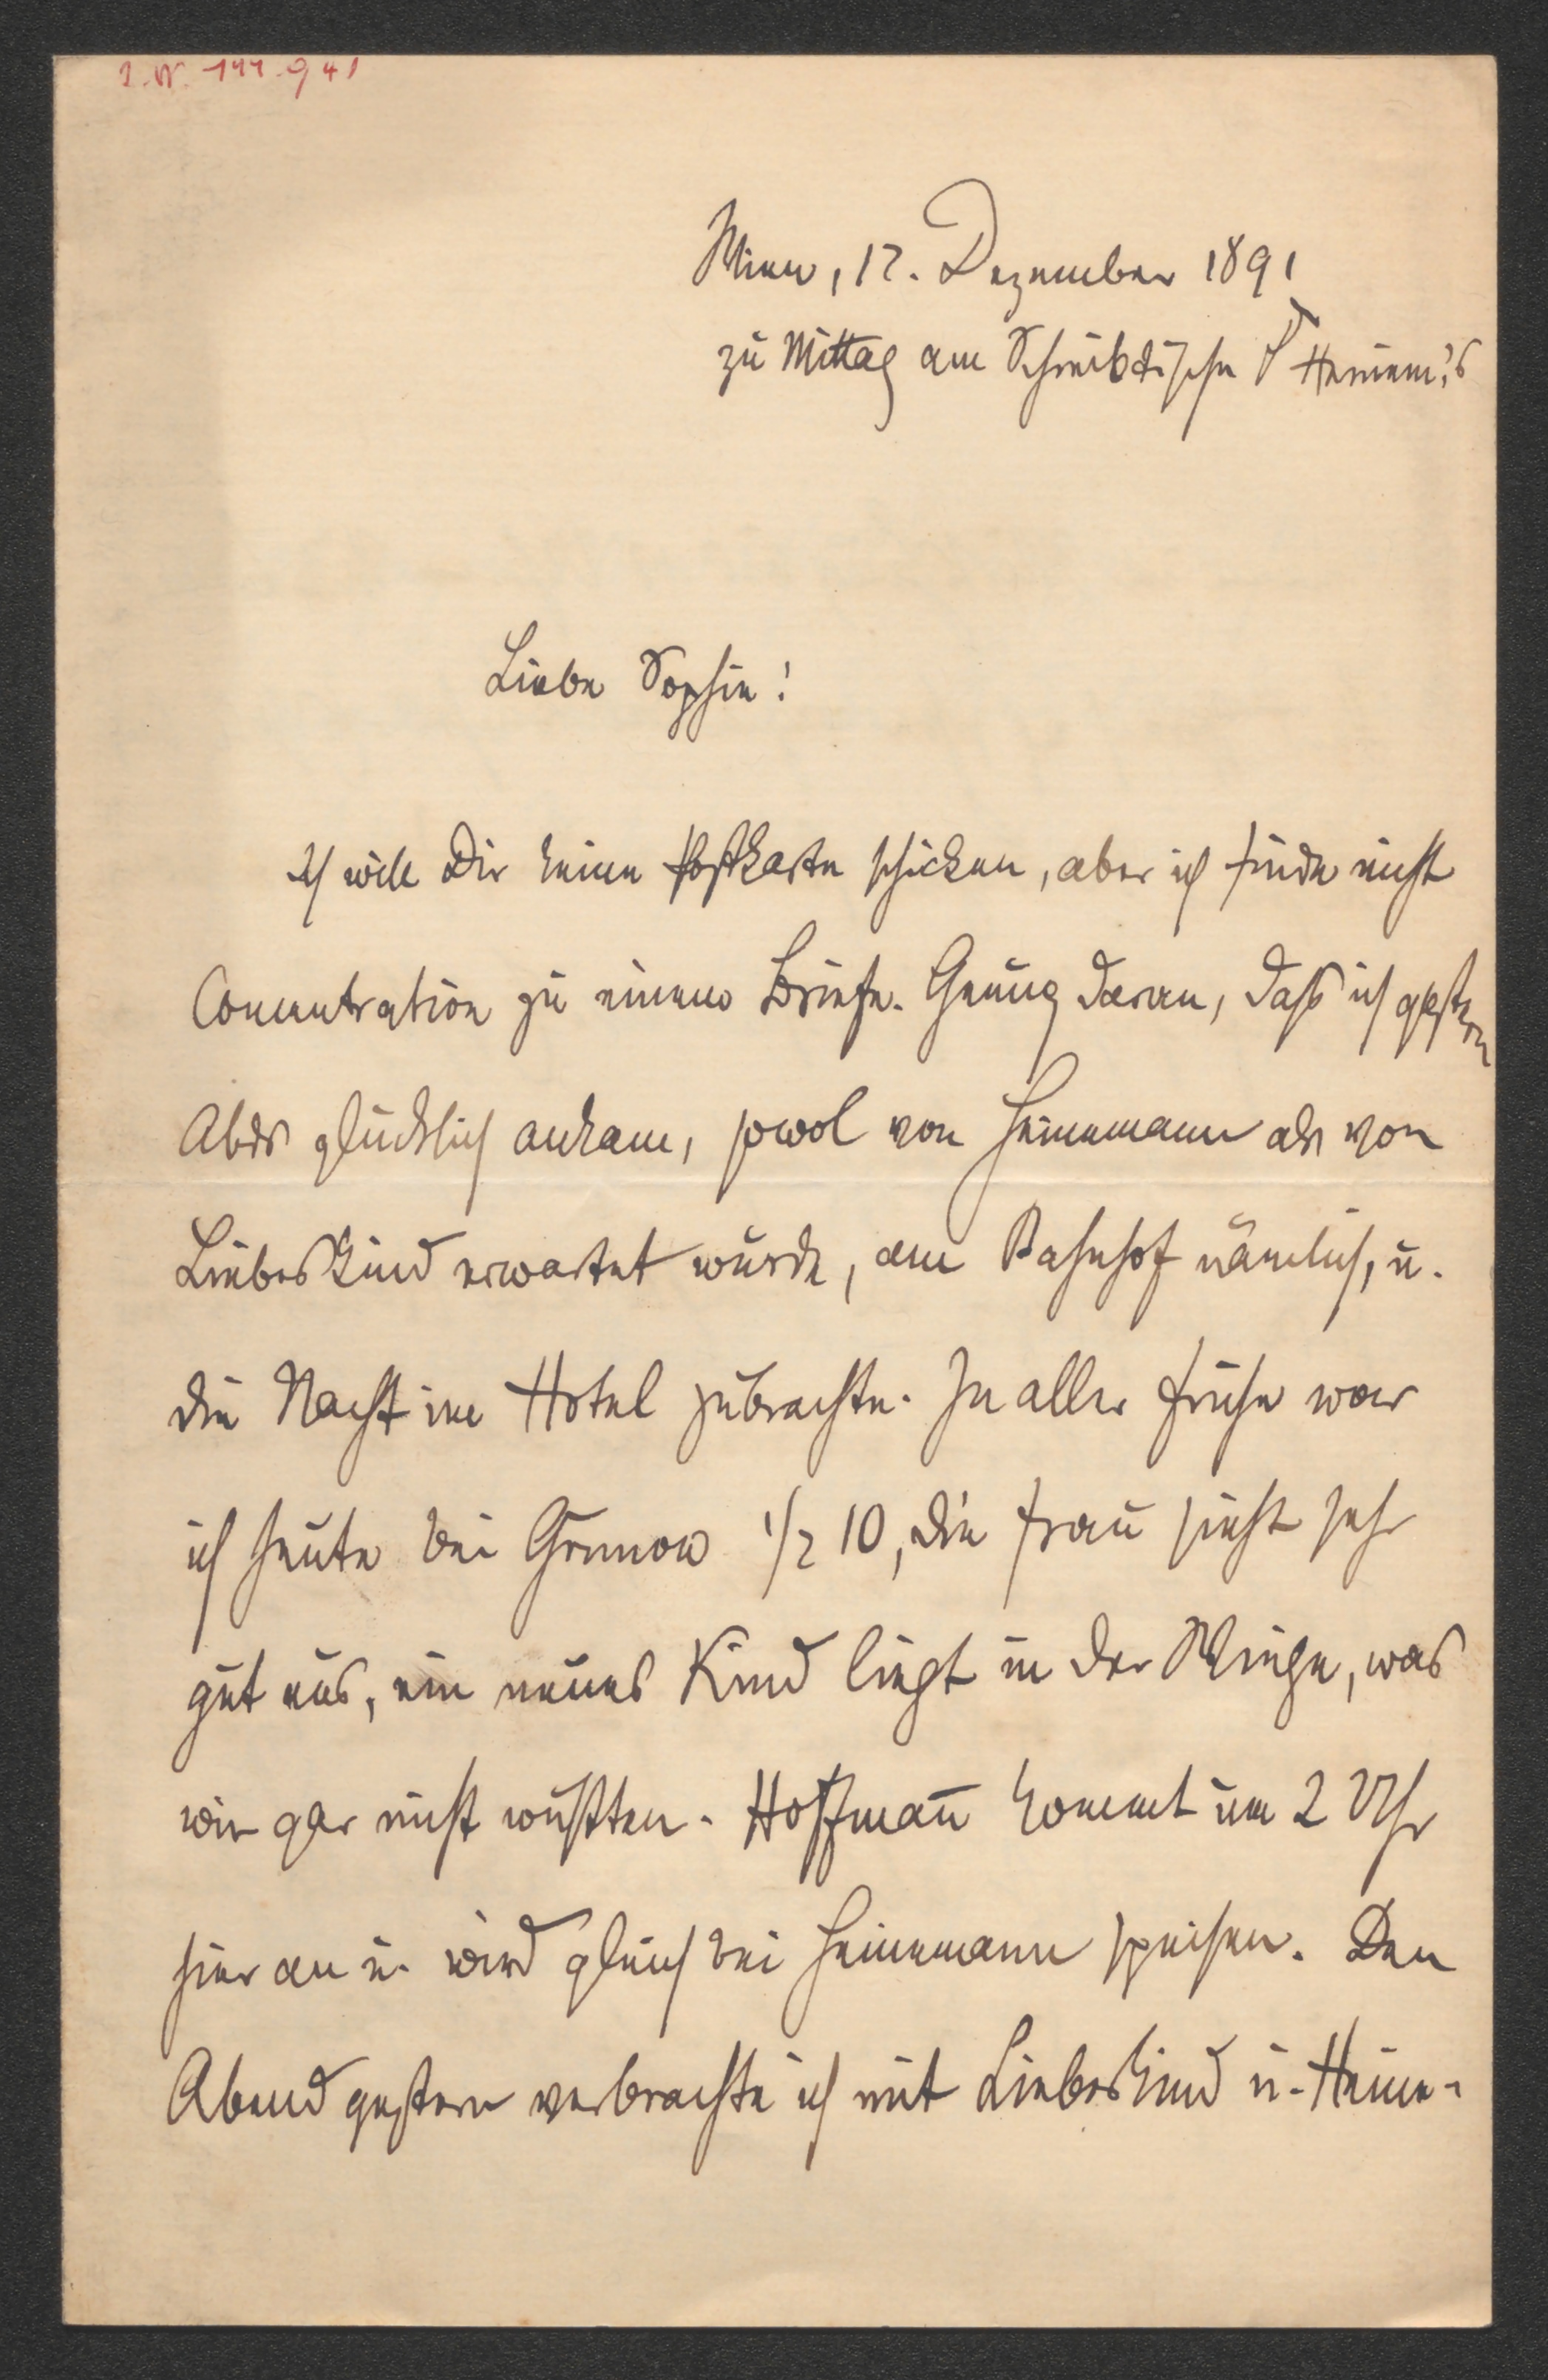 I.N. 144.941
Wien, 12. Dezember 1891
zu Mittag am Schreibtische Heinem's
Liebe Sophie!
Ich will Dir keine Postkarte schicken, aber ich finde nicht
Concentration zu einem Briefe. Genug daran, daß ich gestern
Abds glücklich ankam, sowol von Heinemann als von
Liebeskind erwartet wurde, am Bahnhof nämlich, u.
die Nacht im Hotel zubrachte. In aller Frühe war
ich heute bei Grunow 1/2 10, die Frau sieht sehr
gut aus, ein neues Kind liegt in der Wiege, was
wir gar nicht wußten. Hoffmann kommt um 2 Uhr
hier an u. wird gleich bei Heinemann speisen. Den
Abend gestern verbrachte ich mit Liebeskind u. Heine-